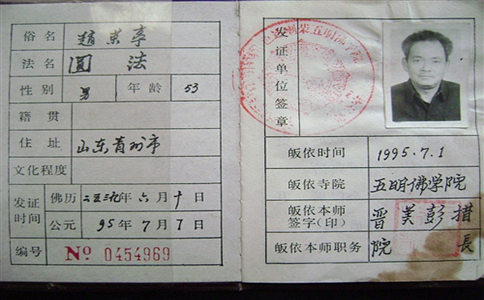 俗名 赵荣亭
法名 圆法
性别 男 年龄 53
籍贯
住址 山东青州市
文化程度
发证时间 佛历 二五三九年六月十日
公元 95年7月7日
编号 № 0454969
发证单位签章
五明佛学院
皈依时间 1995.7.1
皈依寺院 五明佛学院
皈依本师签字(印) 晋美彭措
皈依本师职务 院長